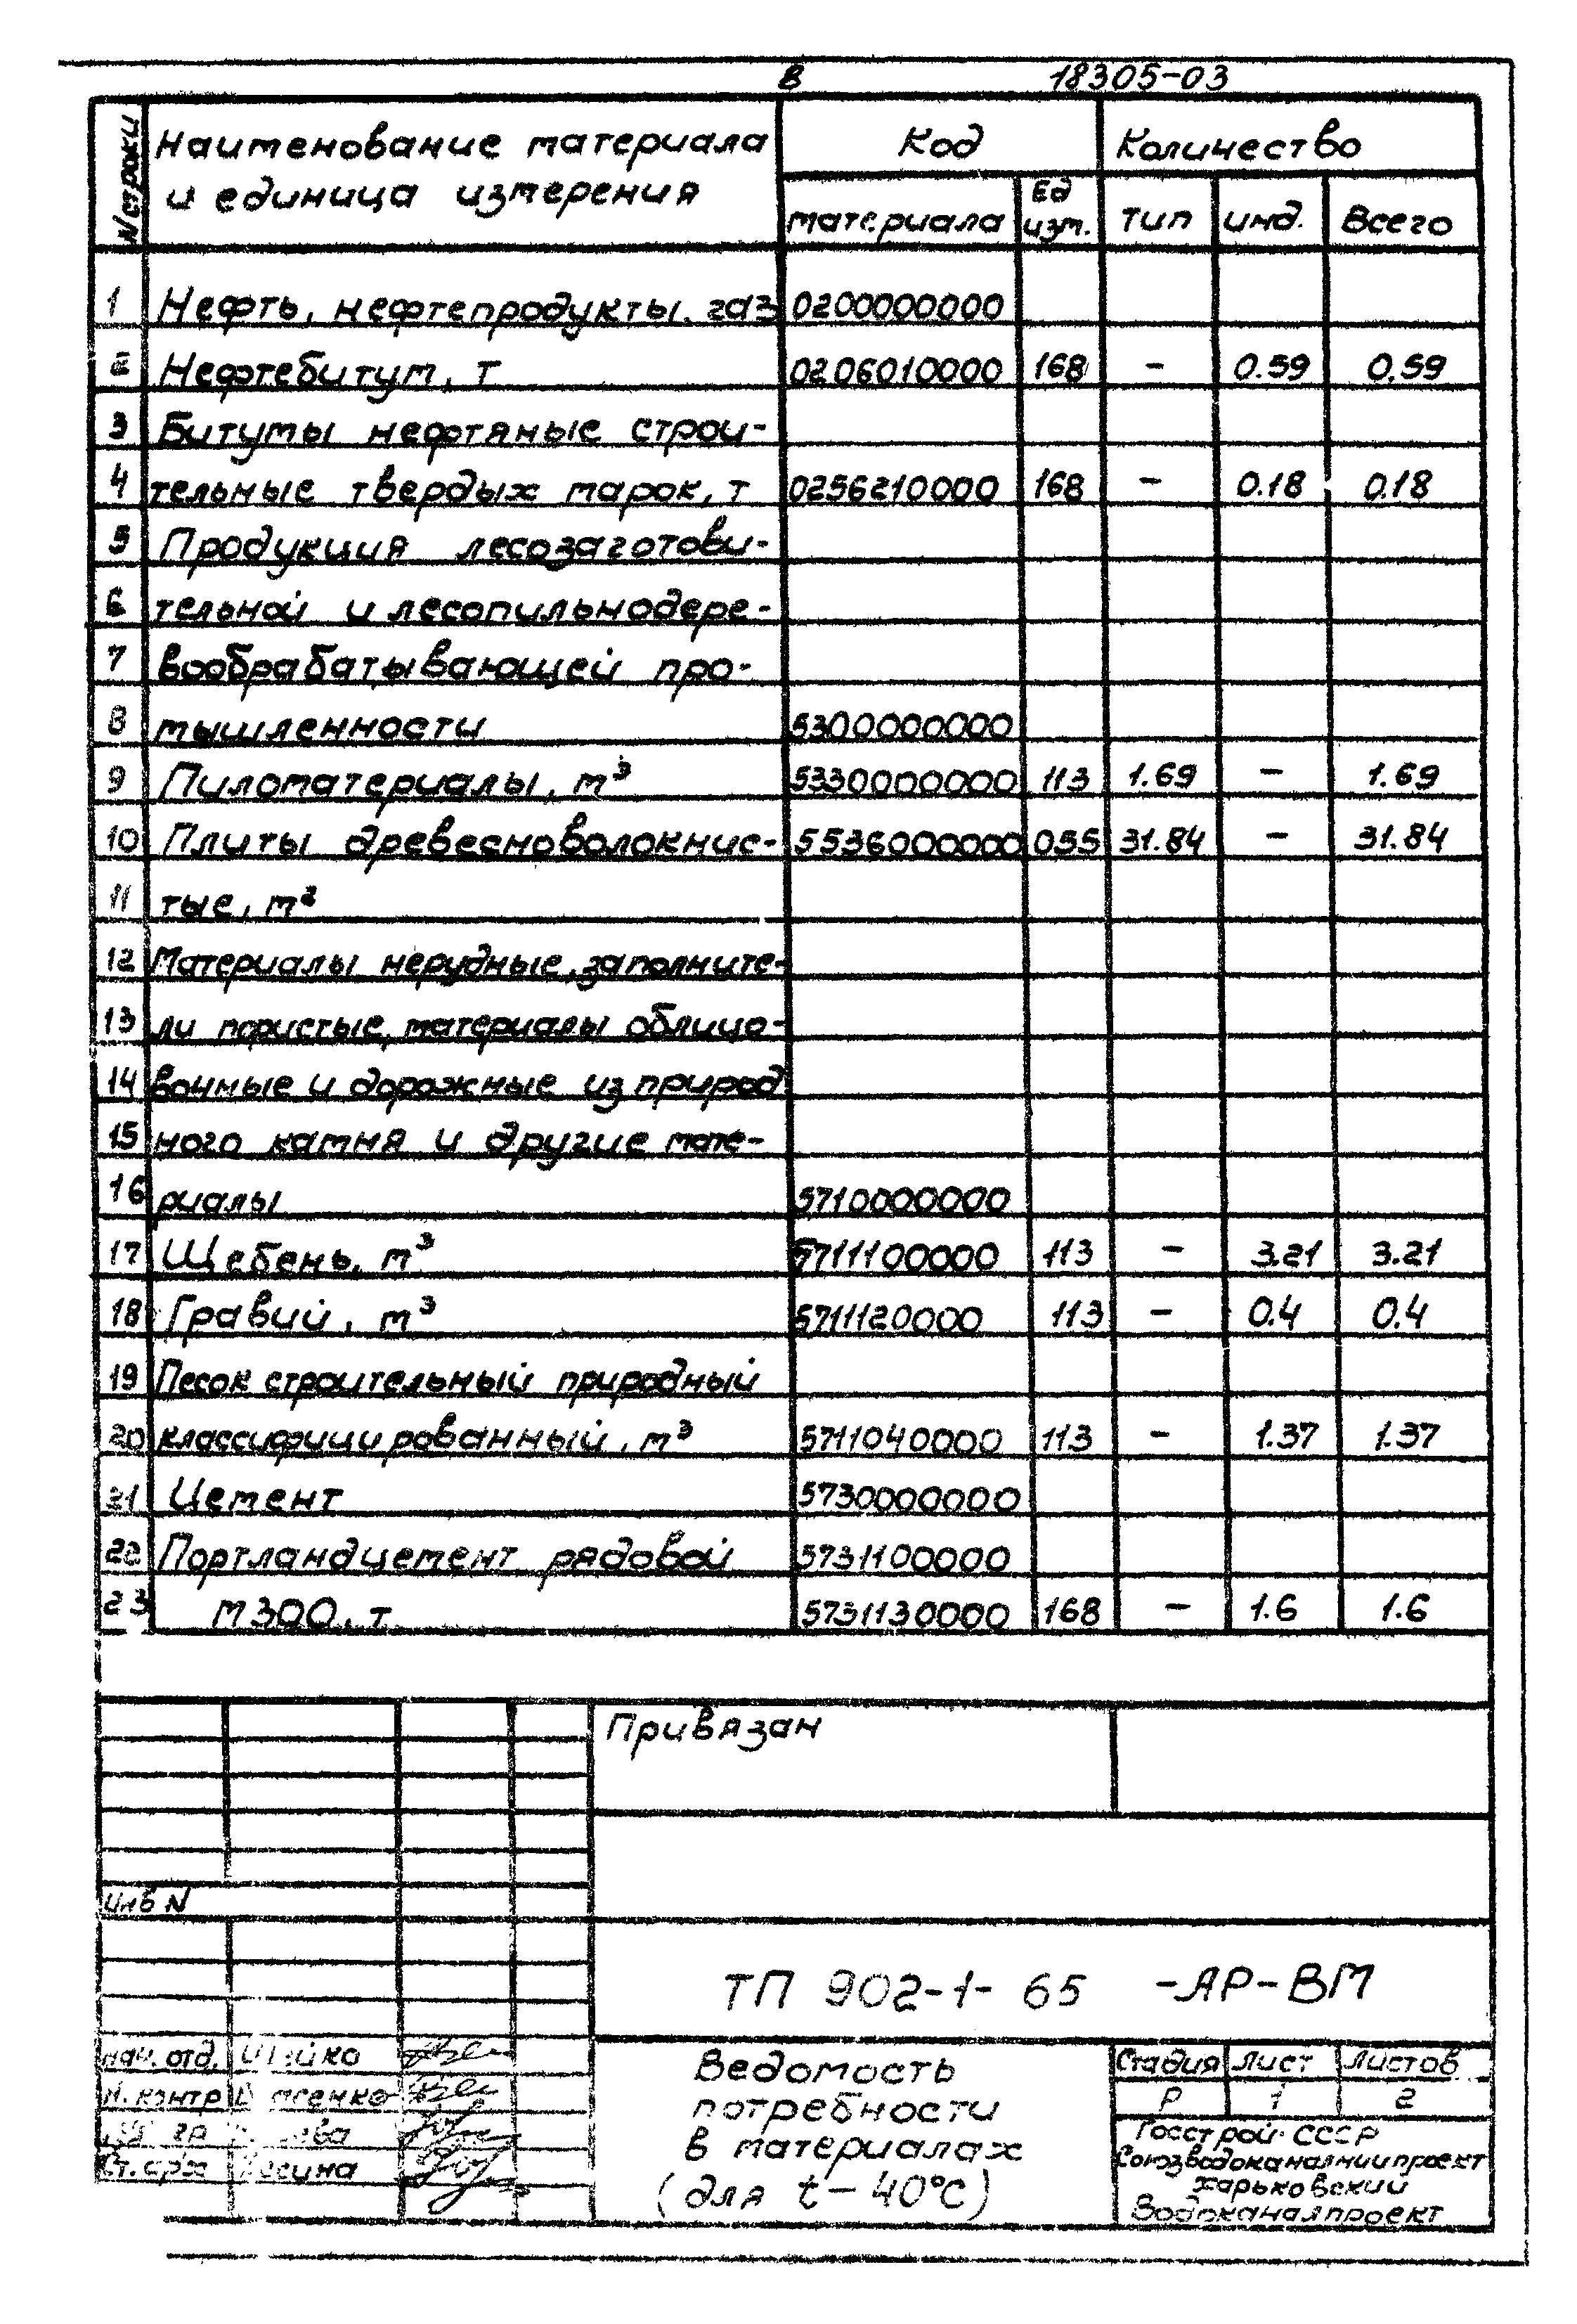 8 18305-03
N строки Наименование материала и единица измерения Код Количество
материала Ед изм. Тип инд. Всего
1 Нефть, нефтепродукты. газ 0200000000
2 Нефтебитум, т 0206010000 168 - 0.59 0.59
3 Битумы нефтяные строи-
4 тельные твердых марок, т 0256210000 168 - 0.18 0.18
5 Продукция лесозаготови-
6 тельной и лесопильнодере-
7 вообрабатывающей про-
8 мышленности 5300000000
9 Пиломатериалы, м³ 5330000000 113 1.69 - 1.69
10 Плиты древесноволокнис- 5536000000 055 31.84 - 31.84
11 тые, м²
12 Материалы нерудные, заполните-
13 ли пористые, материалы облицо-
14 вочные и дорожные из природ
15 ного камня и другие мате-
16 риалы 5710000000
17 Щебень, м³ 5711100000 113 - 3.21 3.21
18 Гравий, м³ 5711120000 113 - 0.4 0.4
19 Песок строительный природный
20 классифицированный, м³ 5711040000 113 - 1.37 1.37
21 Цемент 5730000000
22 Портландцемент рядовой 5731100000
23 м300, т 5731130000 168 - 1.6 1.6
Привязан
Инв N
ТП 902-1- 65 -АР-ВМ
Нач. отд.
Н. контр
гр
Ст. арх
Ведомость
потребности
в материалах
(для t-40°C)
Стадия Лист Листов
Р 1 2
Госстрой СССР
Союзводоканалниипроект
Харьковский
Водоканалпроект